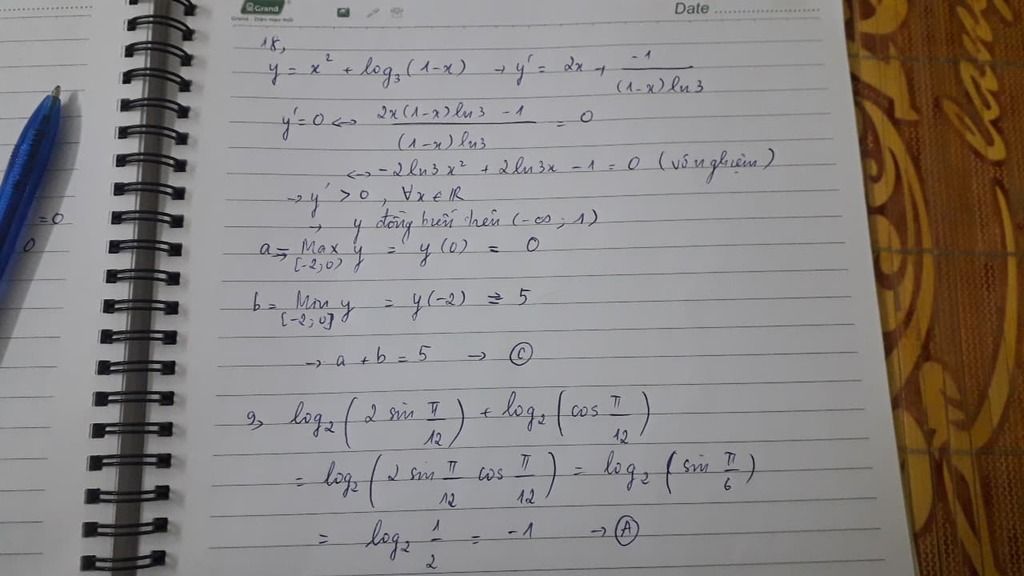 Grand
Date
18,
y = x² + log₃ (1-x) → y' = 2x + -1/((1-x) ln3)
y' = 0 ↔ (2x(1-x) ln3 - 1)/((1-x) ln3) = 0
↔ -2ln3x² + 2ln3x - 1 = 0 (vô nghiệm)
→ y' > 0, ∀x ∈ ℝ
→ y đồng biến trên (-∞; 1)
a = Max y [-2;0) = y(0) = 0
b = Min y [-2;0] = y(-2) = 5
→ a + b = 5 → Ⓒ
9, log₂ (2 sin π/12) + log₂ (cos π/12)
= log₂ (2 sin π/12 cos π/12) = log₂ (sin π/6)
= log₂ 1/2 = -1 → Ⓐ
=0
0